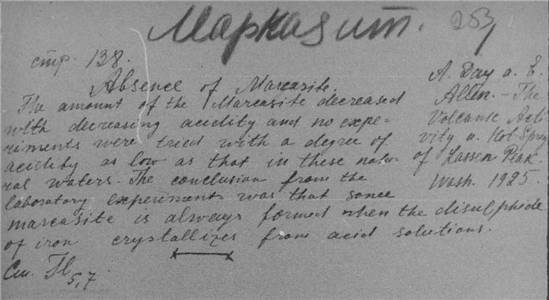 Марказит. 253
стр. 138.
Absence of Marcasite.
The amount of the Marcasite decreased
with decreasing acidity and no expe-
riments were tried with a degree of
acidity as low as that in these natu-
ral waters. The conclusion from the
laboratory experiments was that some
marcasite is always formed when the disulphide
of iron crystallizes from acid solutions.
См. Fl 5,7
A. Day a. E.
Allen. - The
Volcanic Acti-
vity a. Hot Springs
of Lassen Peak.
Wash. 1925.